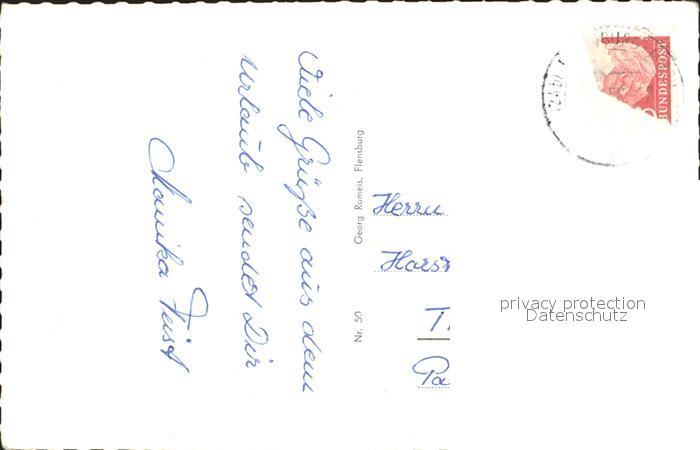 Viele Grüße aus dem
Urlaub sendet Dir
Monika Feist
Georg Romeis, Flensburg
Nr. 50
Herrn
Horst
BUNDESPOST
privacy protection
Datenschutz